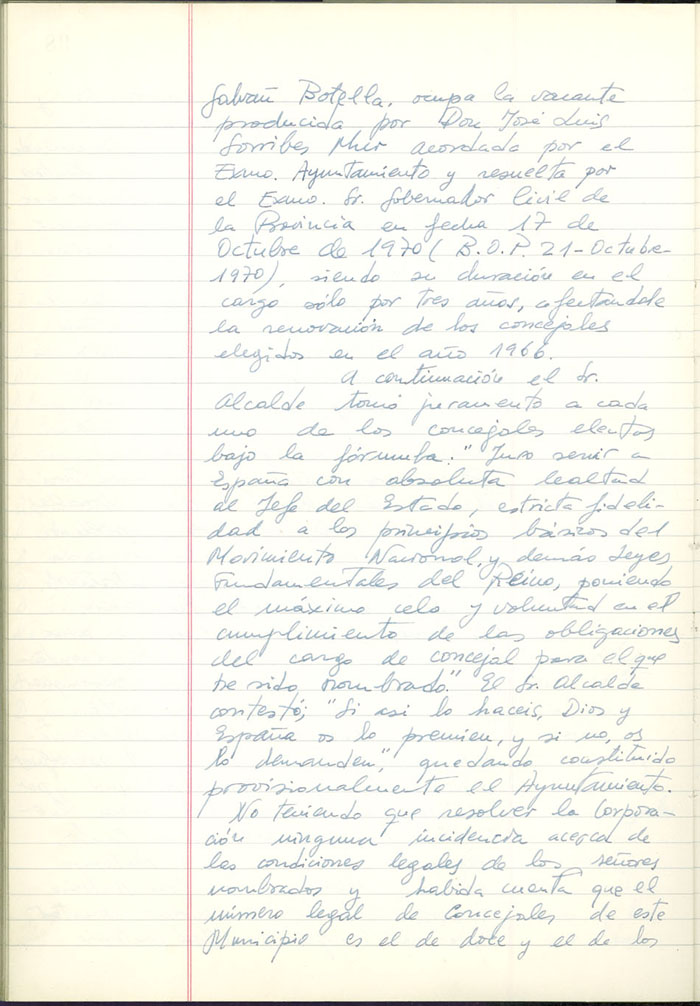 Galvañ Botella, ocupa la vacante
producida por Don José Luis
Sorribes Mur acordada por el
Exmo. Ayuntamiento y resuelta por
el Exmo. Sr. Gobernador Civil de
la Provincia en fecha 17 de
Octubre de 1970 (B.O.P. 21-Octubre-
1970), siendo su duración en el
cargo sólo por tres años, afectandole
la renovación de los concejales
elegidos en el año 1966.
A continuación el Sr.
Alcalde tomó juramento a cada
uno de los concejales electos
bajo la fórmula: "Juro servir a
España con absoluta lealtad
al Jefe del Estado, estricta fideli-
dad a los principios básicos del
Movimiento Nacional, y demás Leyes
Fundamentales del Reino, poniendo
el máximo celo y voluntad en el
cumplimiento de las obligaciones
del cargo de concejal para el que
he sido nombrado." El Sr. Alcalde
contestó; "Si asi lo haceis, Dios y
España os lo premien, y si no, os
lo demanden", quedando constituido
provisionalmente el Ayuntamiento.
No teniendo que resolver la Corpora-
ción ninguna incidencia acerca de
las condiciones legales de los señores
nombrados y habida cuenta que el
número legal de Concejales de este
Municipio es el de doce y el de los